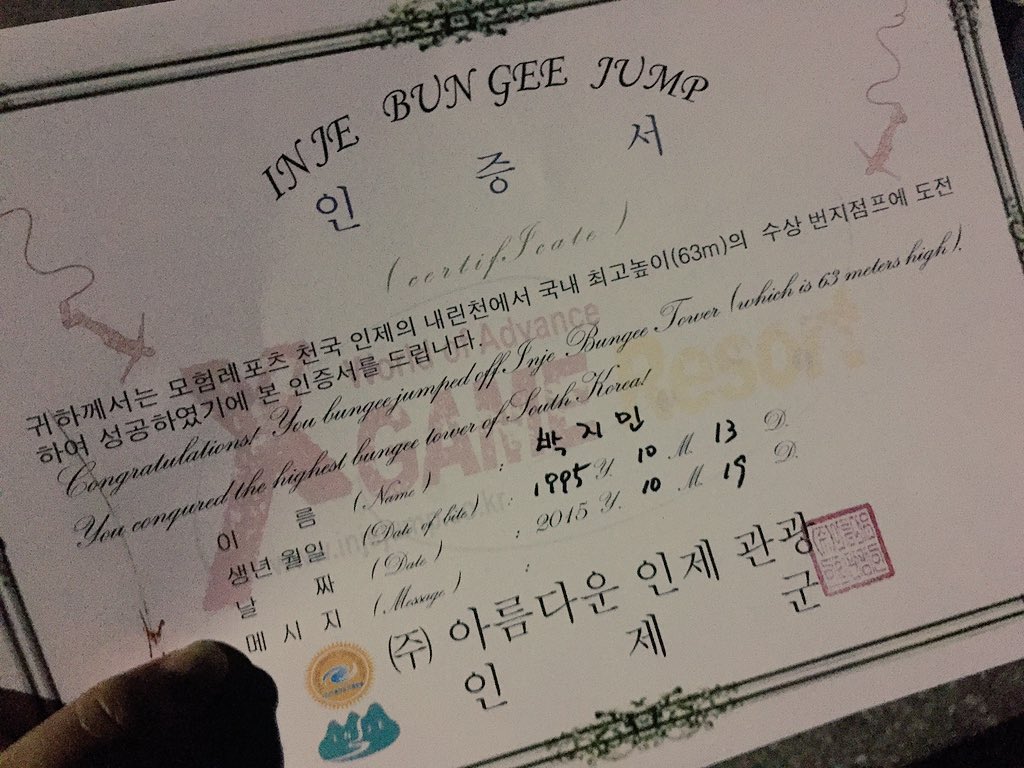 INJE BUN GEE JUMP
인 증 서
(certifIcate)
귀하께서는 모험레포츠 천국 인제의 내린천에서 국내 최고높이(63m)의 수상 번지점프에 도전
하여 성공하였기에 본 인증서를 드립니다.
Congratulations! You bungee jumped off Inje Bungee Tower (which is 63 meters high).
You conqured the highest bungee tower of South Korea!
World of Advance
X GAME Resort
이 름 (Name) : 박지민
생년 월일 (Date of bite) : 1995 Y. 10 M. 13 D.
날 짜 (Date) : 2015 Y. 10 M. 19 D.
메 시 지 (Message) :
(주) 아름다운 인제 관광
인 제 군